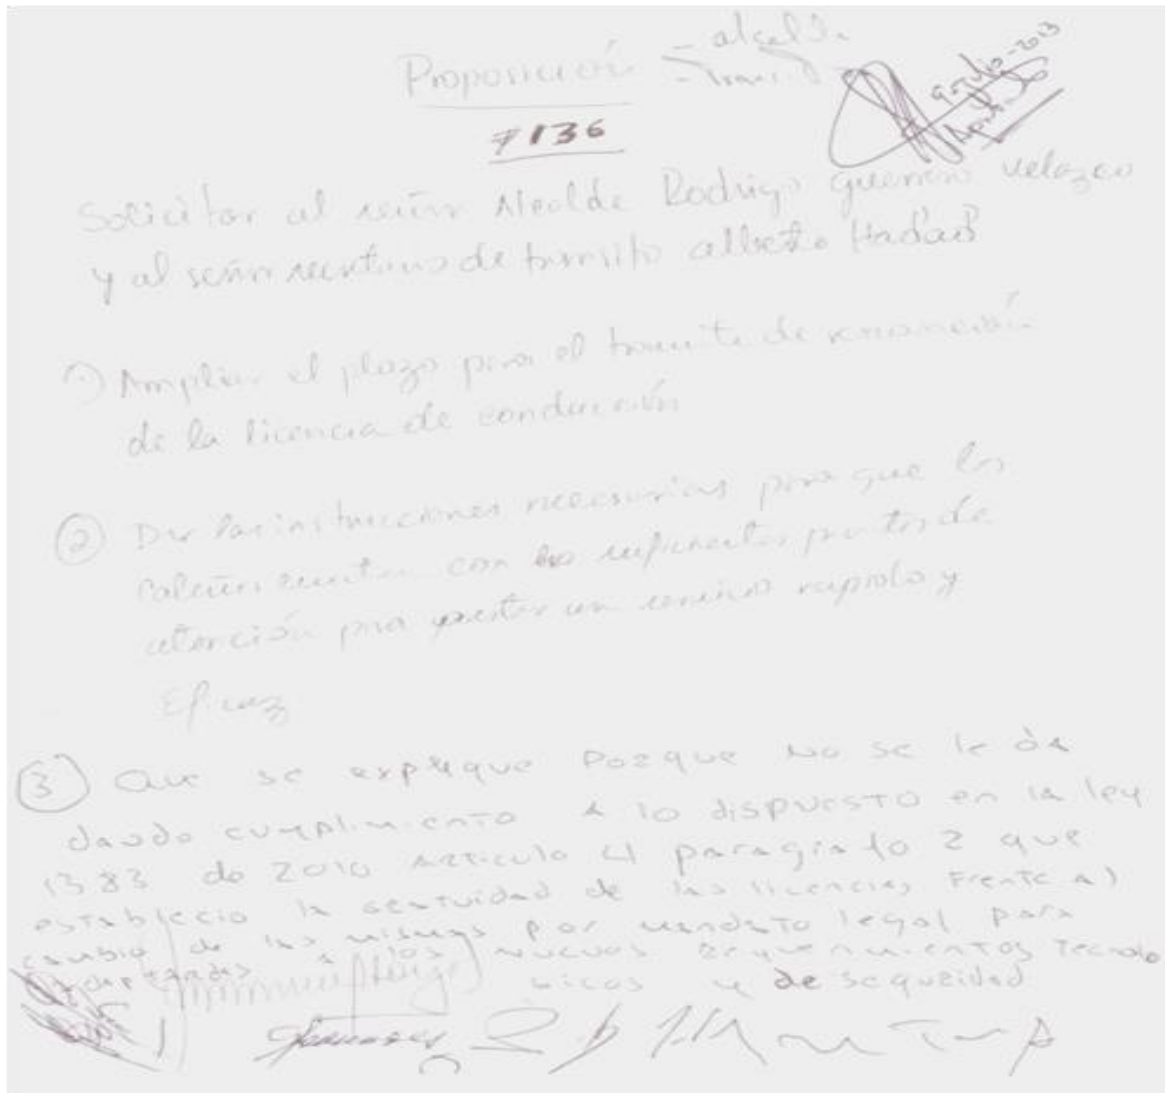 Proposición - alcaldía
- Transito
7136
Agosto-2013
Solicitar al señor Alcalde Rodrigo guerrero velazco
y al señor secretario de transito alberto Hadad
1) Ampliar el plazo para el tramite de renovación
de la licencia de conducción
2) Dar las instrucciones necesarias para que los
cuenten con los suficientes puntos de
atención para prestar un servicio rapido y
Eficaz
3 Que se explique Porque No se le da
dando cumplimiento a lo dispuesto en la ley
1383 de 2010 Articulo 4 paragrafo 2 que
establecio la gratuidad de las licencias Frente al
cambio de las mismas por mandato legal para
adaptarlas a los nuevos Requerimientos Tecnolo
gicos y de seguridad